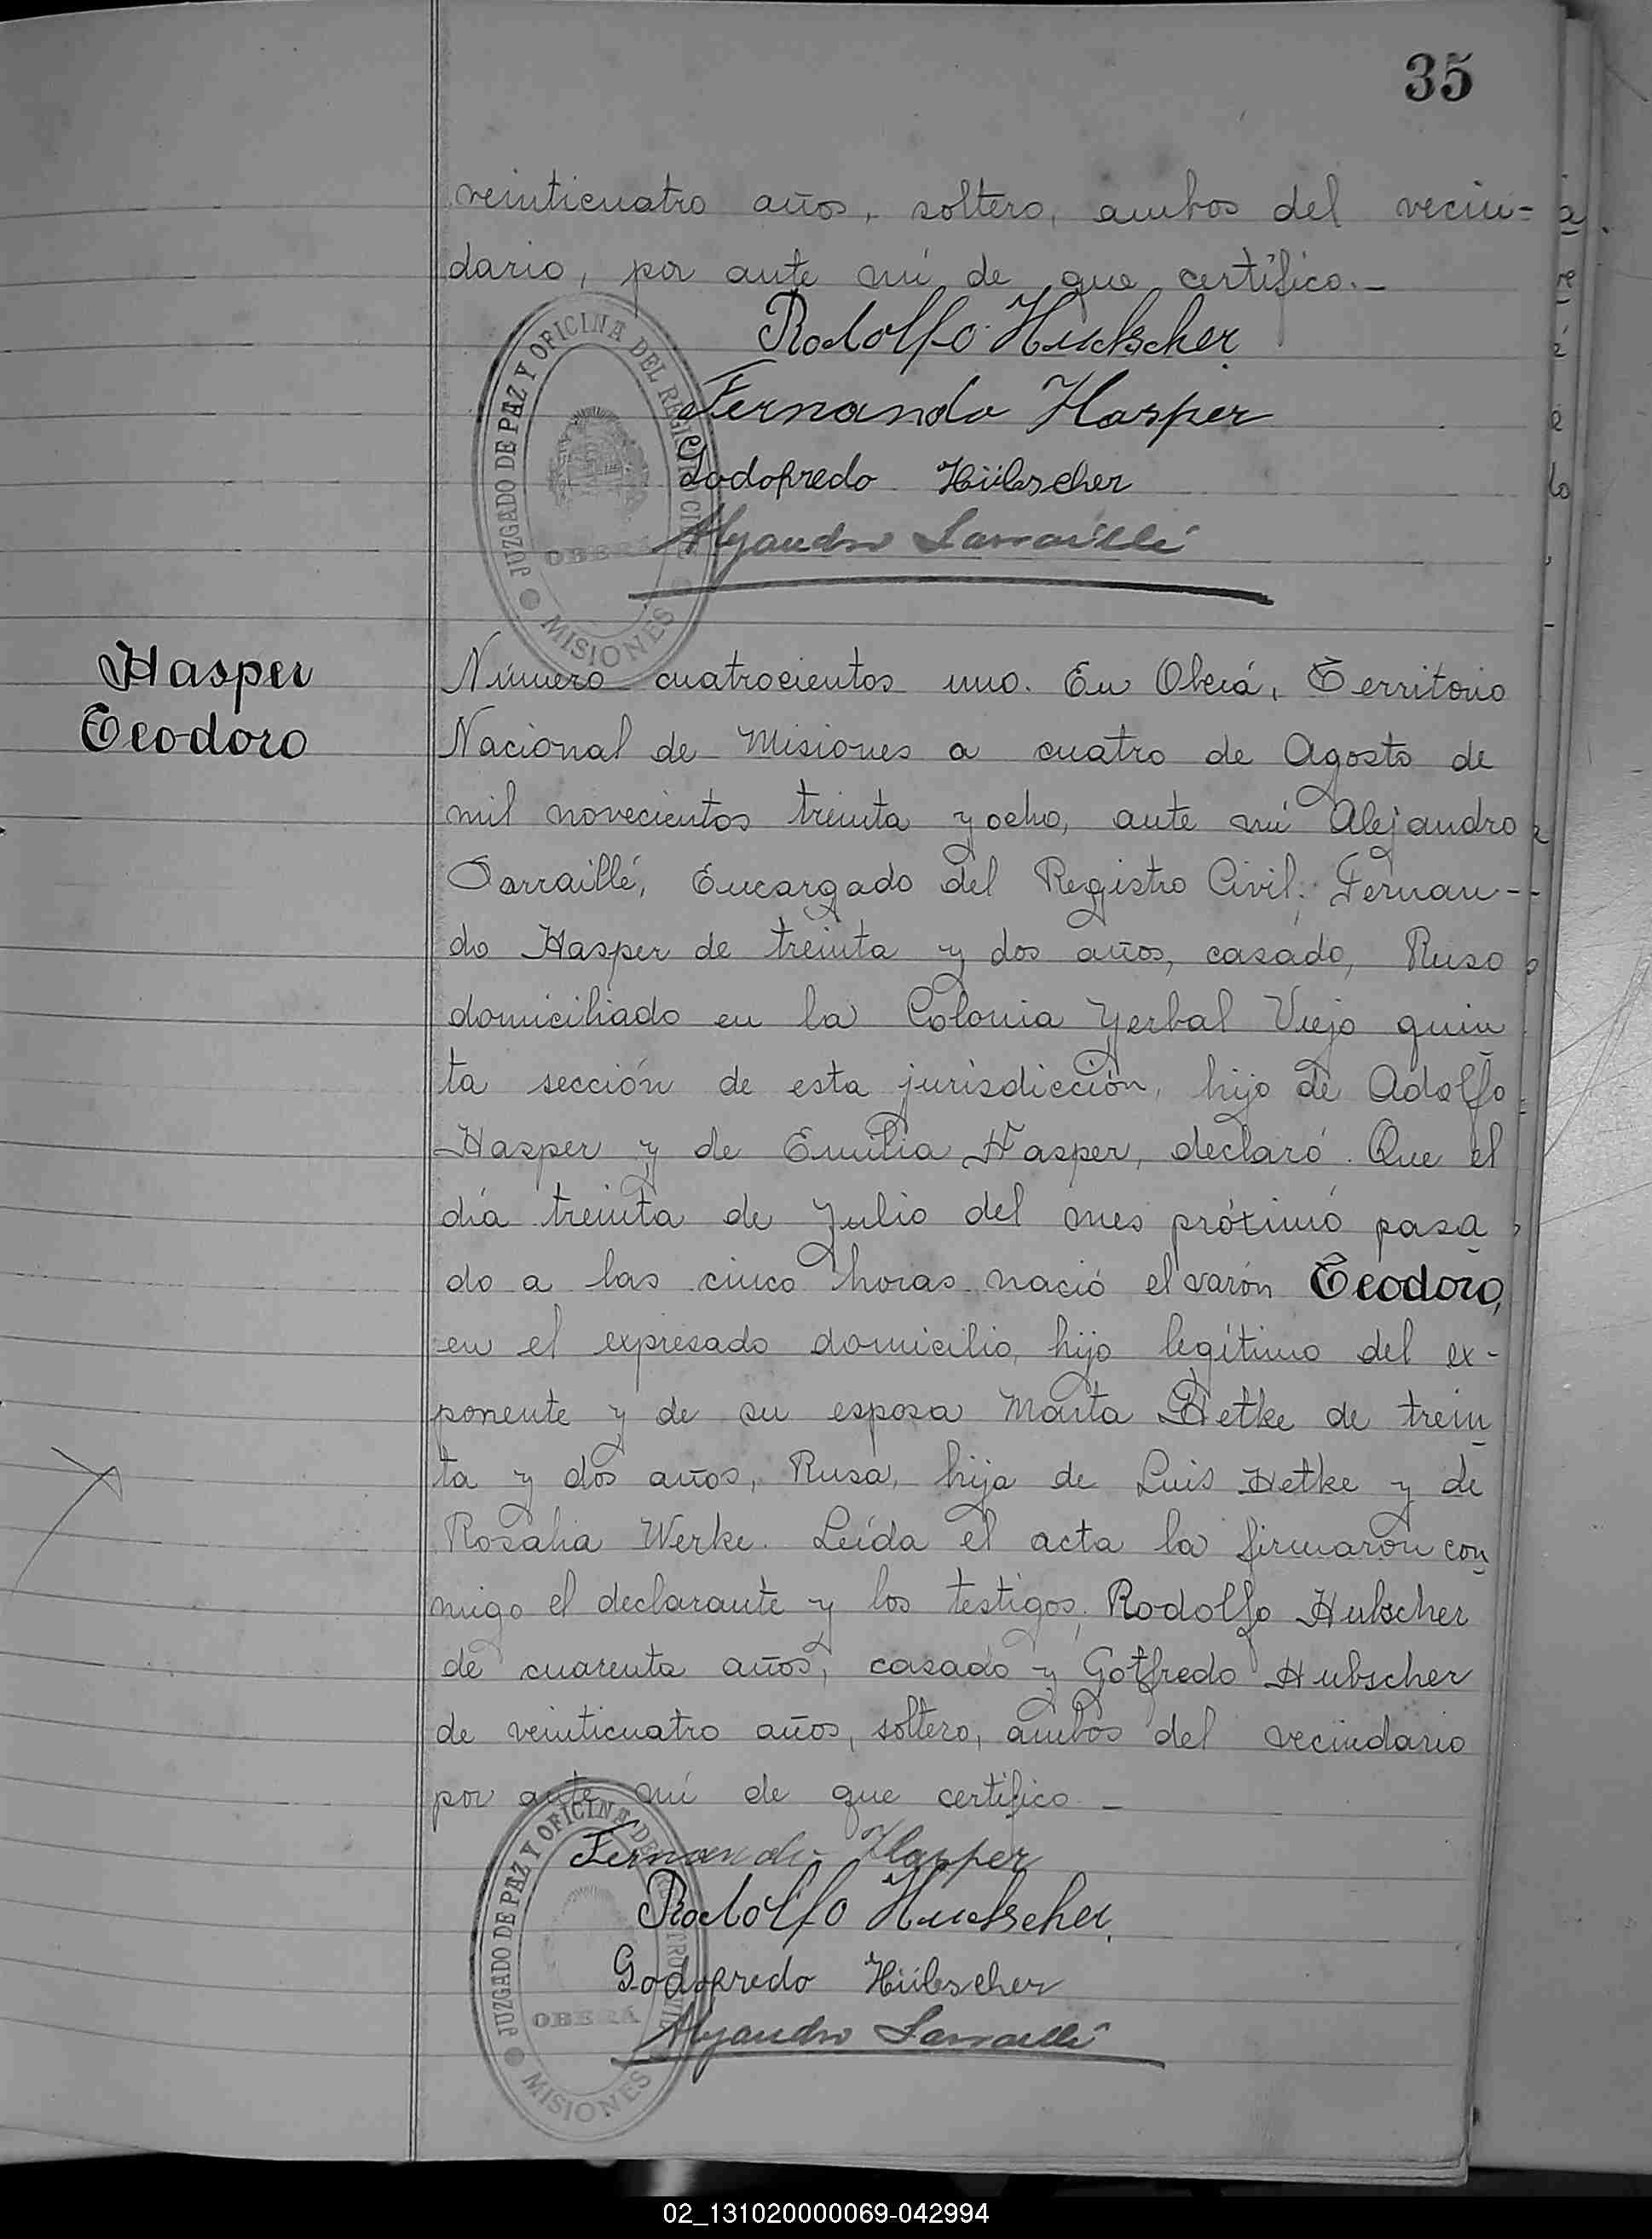 35
veinticuatro años, soltero, ambos del vecin-
dario, por ante mí de que certifico.-
Rodolfo Huebscher
Fernando Hasper
Godofredo Hübscher
Alejandro Larraillé
JUZGADO DE PAZ Y OFICINA DEL REGISTRO CIVIL
OBERÁ
MISIONES
Hasper
Teodoro
Número cuatrocientos uno. En Oberá, Territorio
Nacional de Misiones a cuatro de Agosto de
mil novecientos treinta y ocho, ante mí Alejandro
Larraillé, Encargado del Registro Civil; Fernan-
do Hasper de treinta y dos años, casado, Ruso
domiciliado en la Colonia Yerbal Viejo quin
ta sección de esta jurisdicción, hijo de Adolfo
Hasper y de Emilia Hasper, declaró. Que el
día treinta de Julio del mes próximo pasa
do a las cinco horas nació el varón Teodoro,
en el expresado domicilio, hijo legítimo del ex-
ponente y de su esposa Marta Hetke de trein
ta y dos años, Rusa, hija de Luis Hetke y de
Rosalia Werke. Leída el acta la firmaron con
migo el declarante y los testigos, Rodolfo Hubscher
de cuarenta años, casado y Gotfredo Hubscher
de veinticuatro años, soltero, ambos del vecindario
por ante mí de que certifico -
Fernando Hasper
Rodolfo Huebscher
Godofredo Hübscher
Alejandro Larraillé
JUZGADO DE PAZ Y OFICINA DEL REGISTRO CIVIL
OBERÁ
MISIONES
02_131020000069-042994